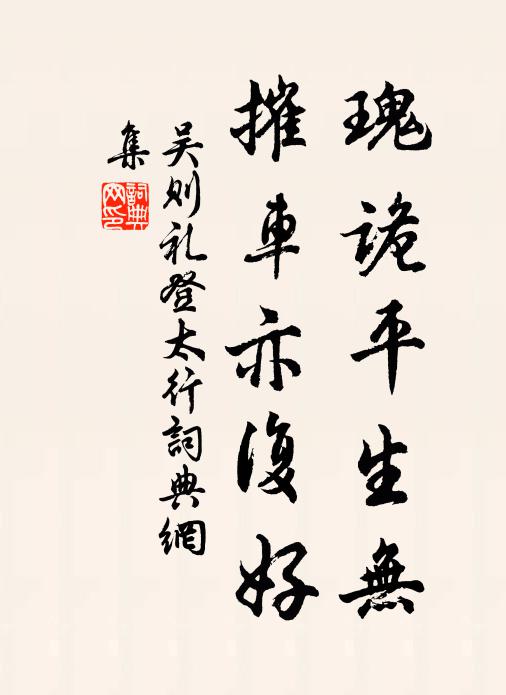 瑰詭平生無
摧車亦復好
吴则礼登太行詞典網
集
詞典
网印